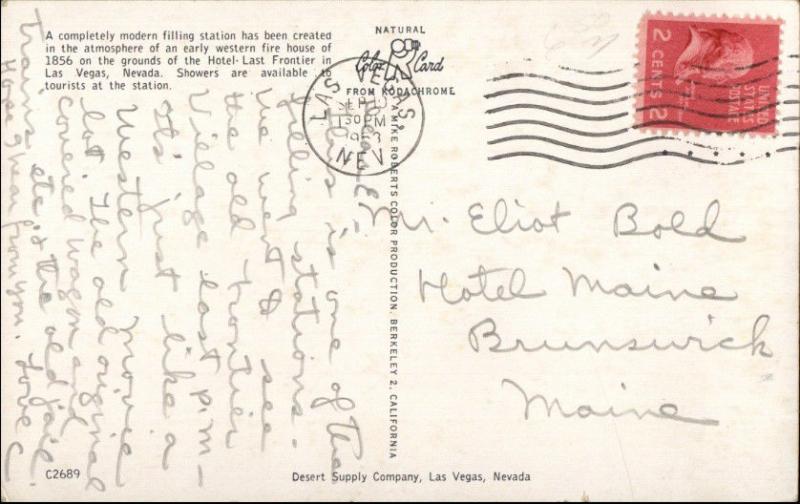 A completely modern filling station has been created
in the atmosphere of an early western fire house of
1856 on the grounds of the Hotel-Last Frontier in
Las Vegas, Nevada. Showers are available to
tourists at the station.
NATURAL
Color Card
FROM KODACHROME
LAS VEGAS,
SEP
30 PM
NEV.
UNITED
STATES
POSTAGE
2 CENTS 2
A MIKE ROBERTS COLOR PRODUCTION. BERKELEY 2, CALIFORNIA
This is one of the
filling stations.
We went & see
the old Frontier
Village last p.m.
It's just like a
Western Movie
lot. The old original
covered wagon and
trains etc & the old jail.
Hope hear from you. Love C
Mr. Eliot Bold
Hotel Maine
Brunswick
Maine
C2689
Desert Supply Company, Las Vegas, Nevada